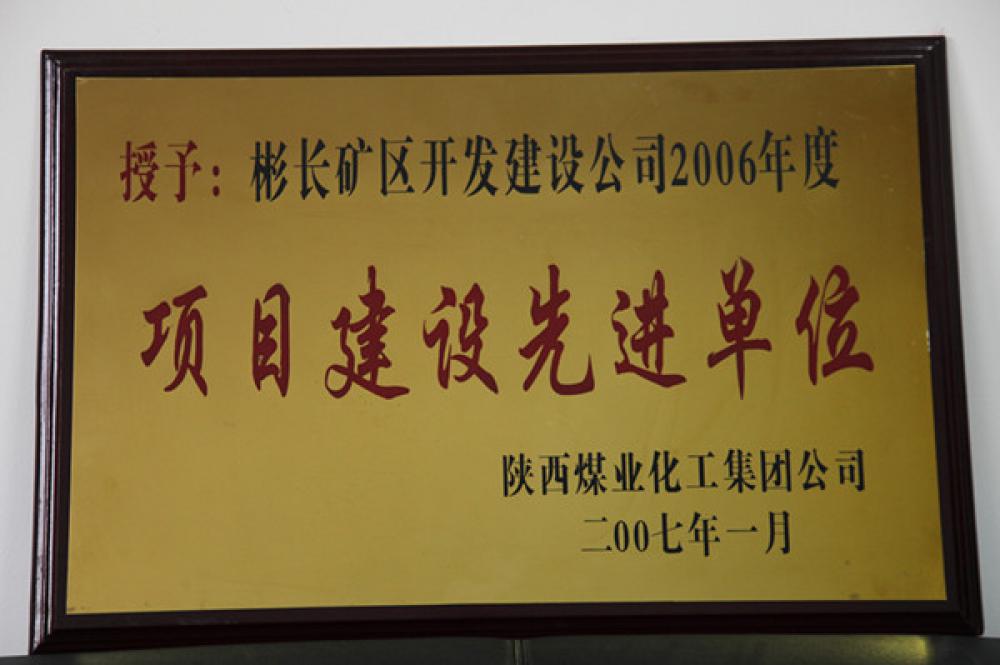 授予：彬长矿区开发建设公司2006年度
项目建设先进单位
陕西煤业化工集团公司
二00七年一月